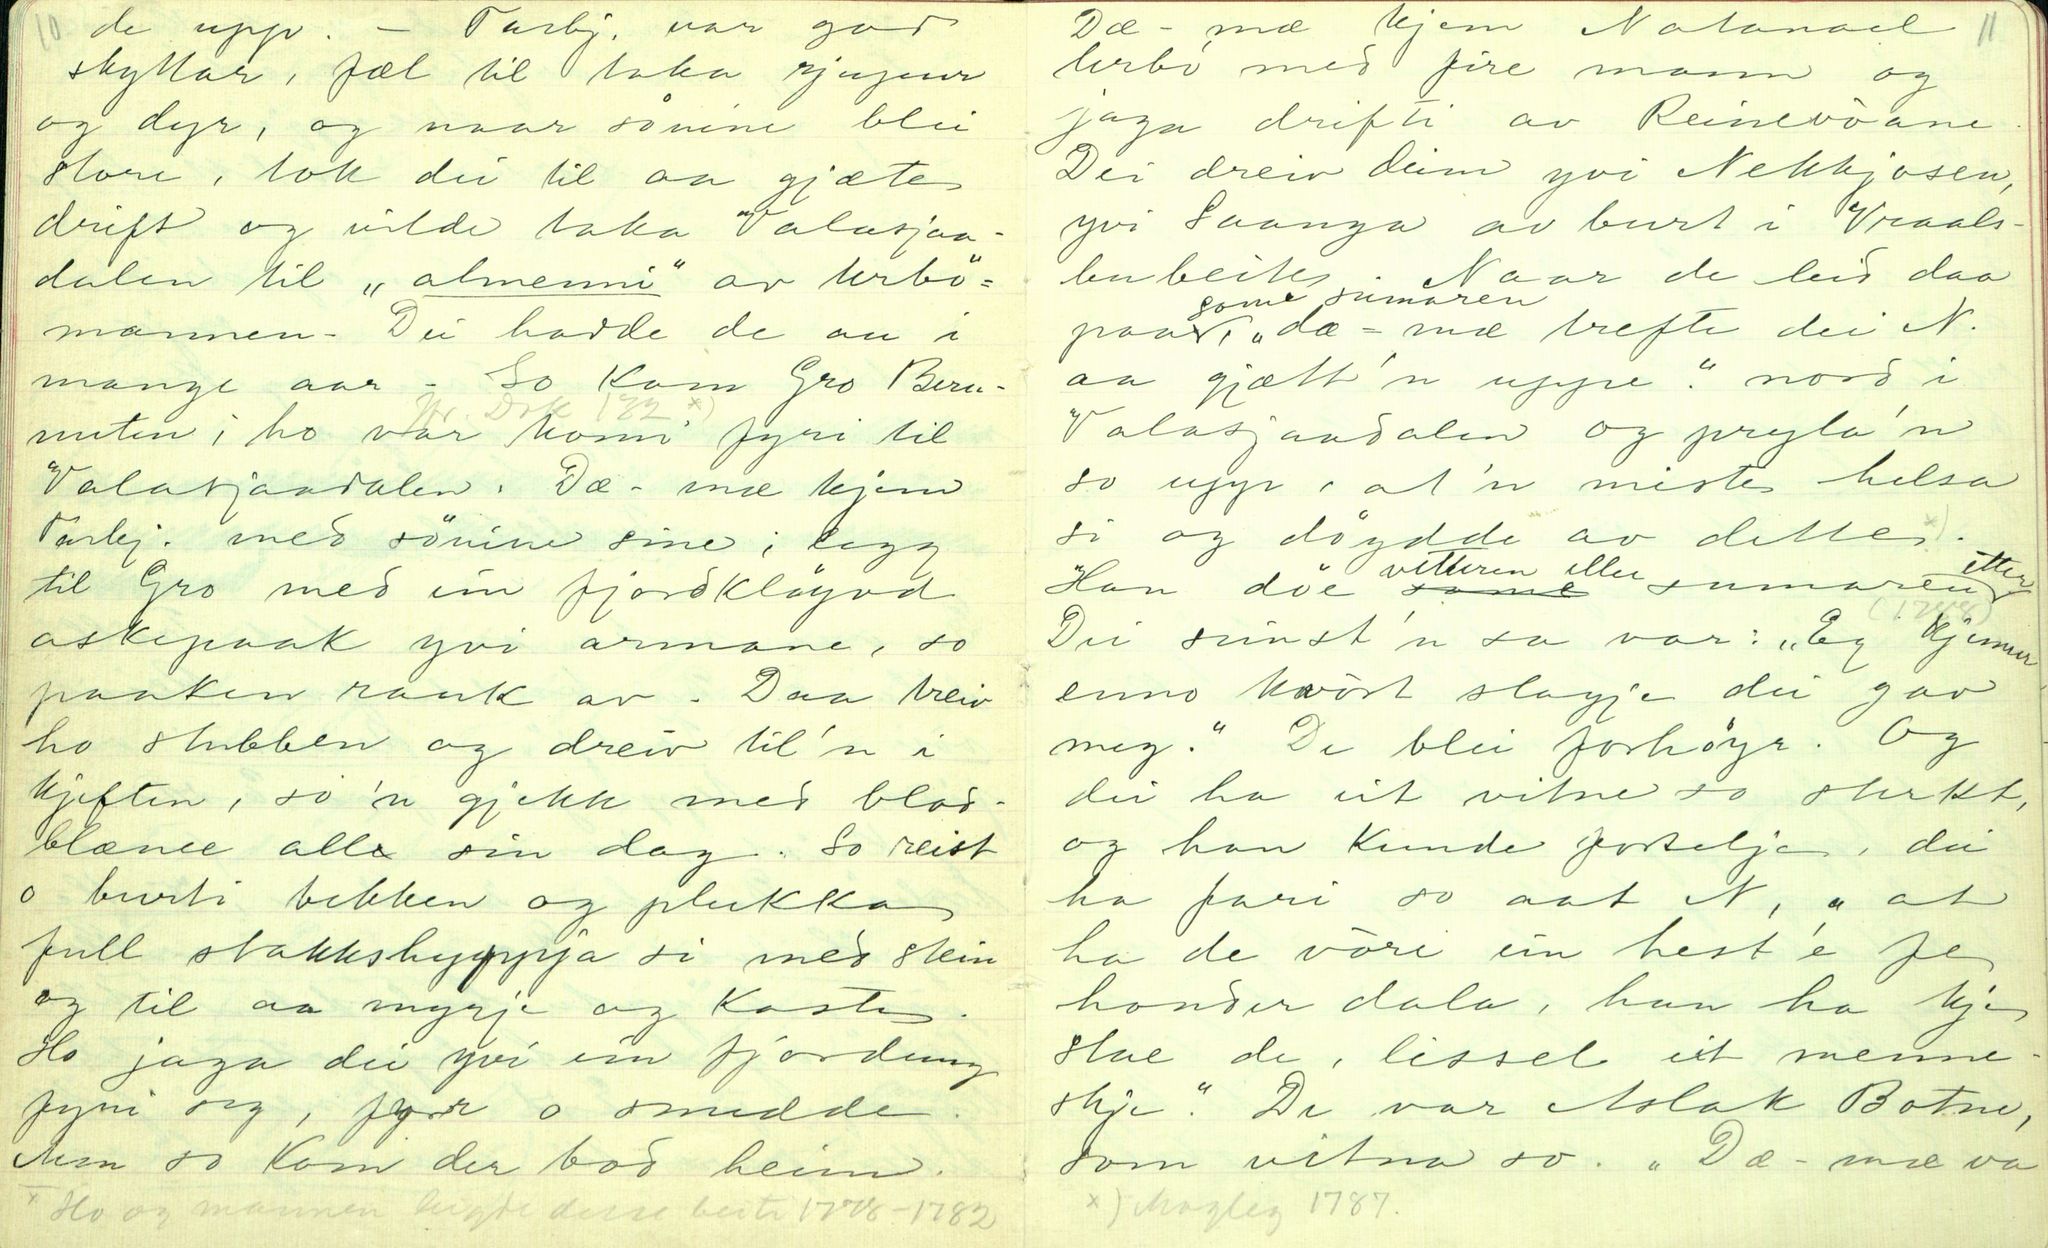 10
de upp. - Tarbj. var god
skyttar, fæl til taka
og dyr, og naar sönine blei
store, tok dei til aa gjæte
drift og vilde taka Valasjaa-
dalen til „almenni" av Urbö=
mannen - Dei hadde de au i
mange aar - So kom Gro Beru-
nuten; ho var komi fyri til
Valasjaadalen. Dæ - mæ kjem
Tarbj. med sönine sine; legg
til Gro med ein fjordklöyvd
askepaak yvi armane, so
paaken rauk av - Daa treiv
ho stubben og dreiv til'n i
kjeften, so'n gjekk med blod-
blæmee alle sin dag. So reist
o burti bekken og plukka
full stakkshyppja si med stein
og til aa myrje og kaste.
Ho jaga dei yvi ein fjordung
fyri seg, fyrr o snudde.
Men so kom der bod heim.
x Ho og mannen leigde desse beite 1778-1782
11
Dæ - mæ kjem Natanael
Urbö med fire mann og
jaga drifti av Reinevöane.
Dei dreiv deim yvi Nekkjosen,
yvi Saanga av burt i Vraals-
bubeite. Naar de leid daa
some sumaren
paa, „dæ = mæ trefte dei N.
aa gjætt'n uppe." nord i
Valasjaadalen og pryla'n
so upp, at'n miste helsa
si og döydde av dette. x)
vetteren eller
Han döe some sumaren etter
(1788)
Dei sinst'n sa var: „Eg kjenner
enno kvört slagje dei gav
meg." De blei forhöyr. Og
dei ha eit vitne so sterkt,
og han kunde fortelja, dei
ha fari so aat N, „at
ha de vöri ein hest'e fe
honder dala, han ha kje
stae de, lissel eit menne-
skje". De var Aslak Botne,
som vitna so. „Dæ - mæ va
x) Magleg 1787.